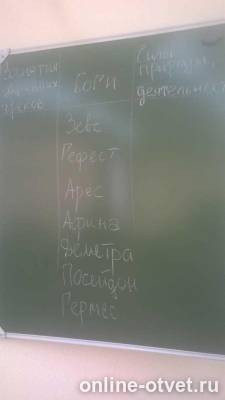 Занятия
древних
греков
Боги
Силы
природы,
деятельност
Зевс
Гефест
Арес
Афина
Деметра
Посейдон
Гермес
online-otvet.ru